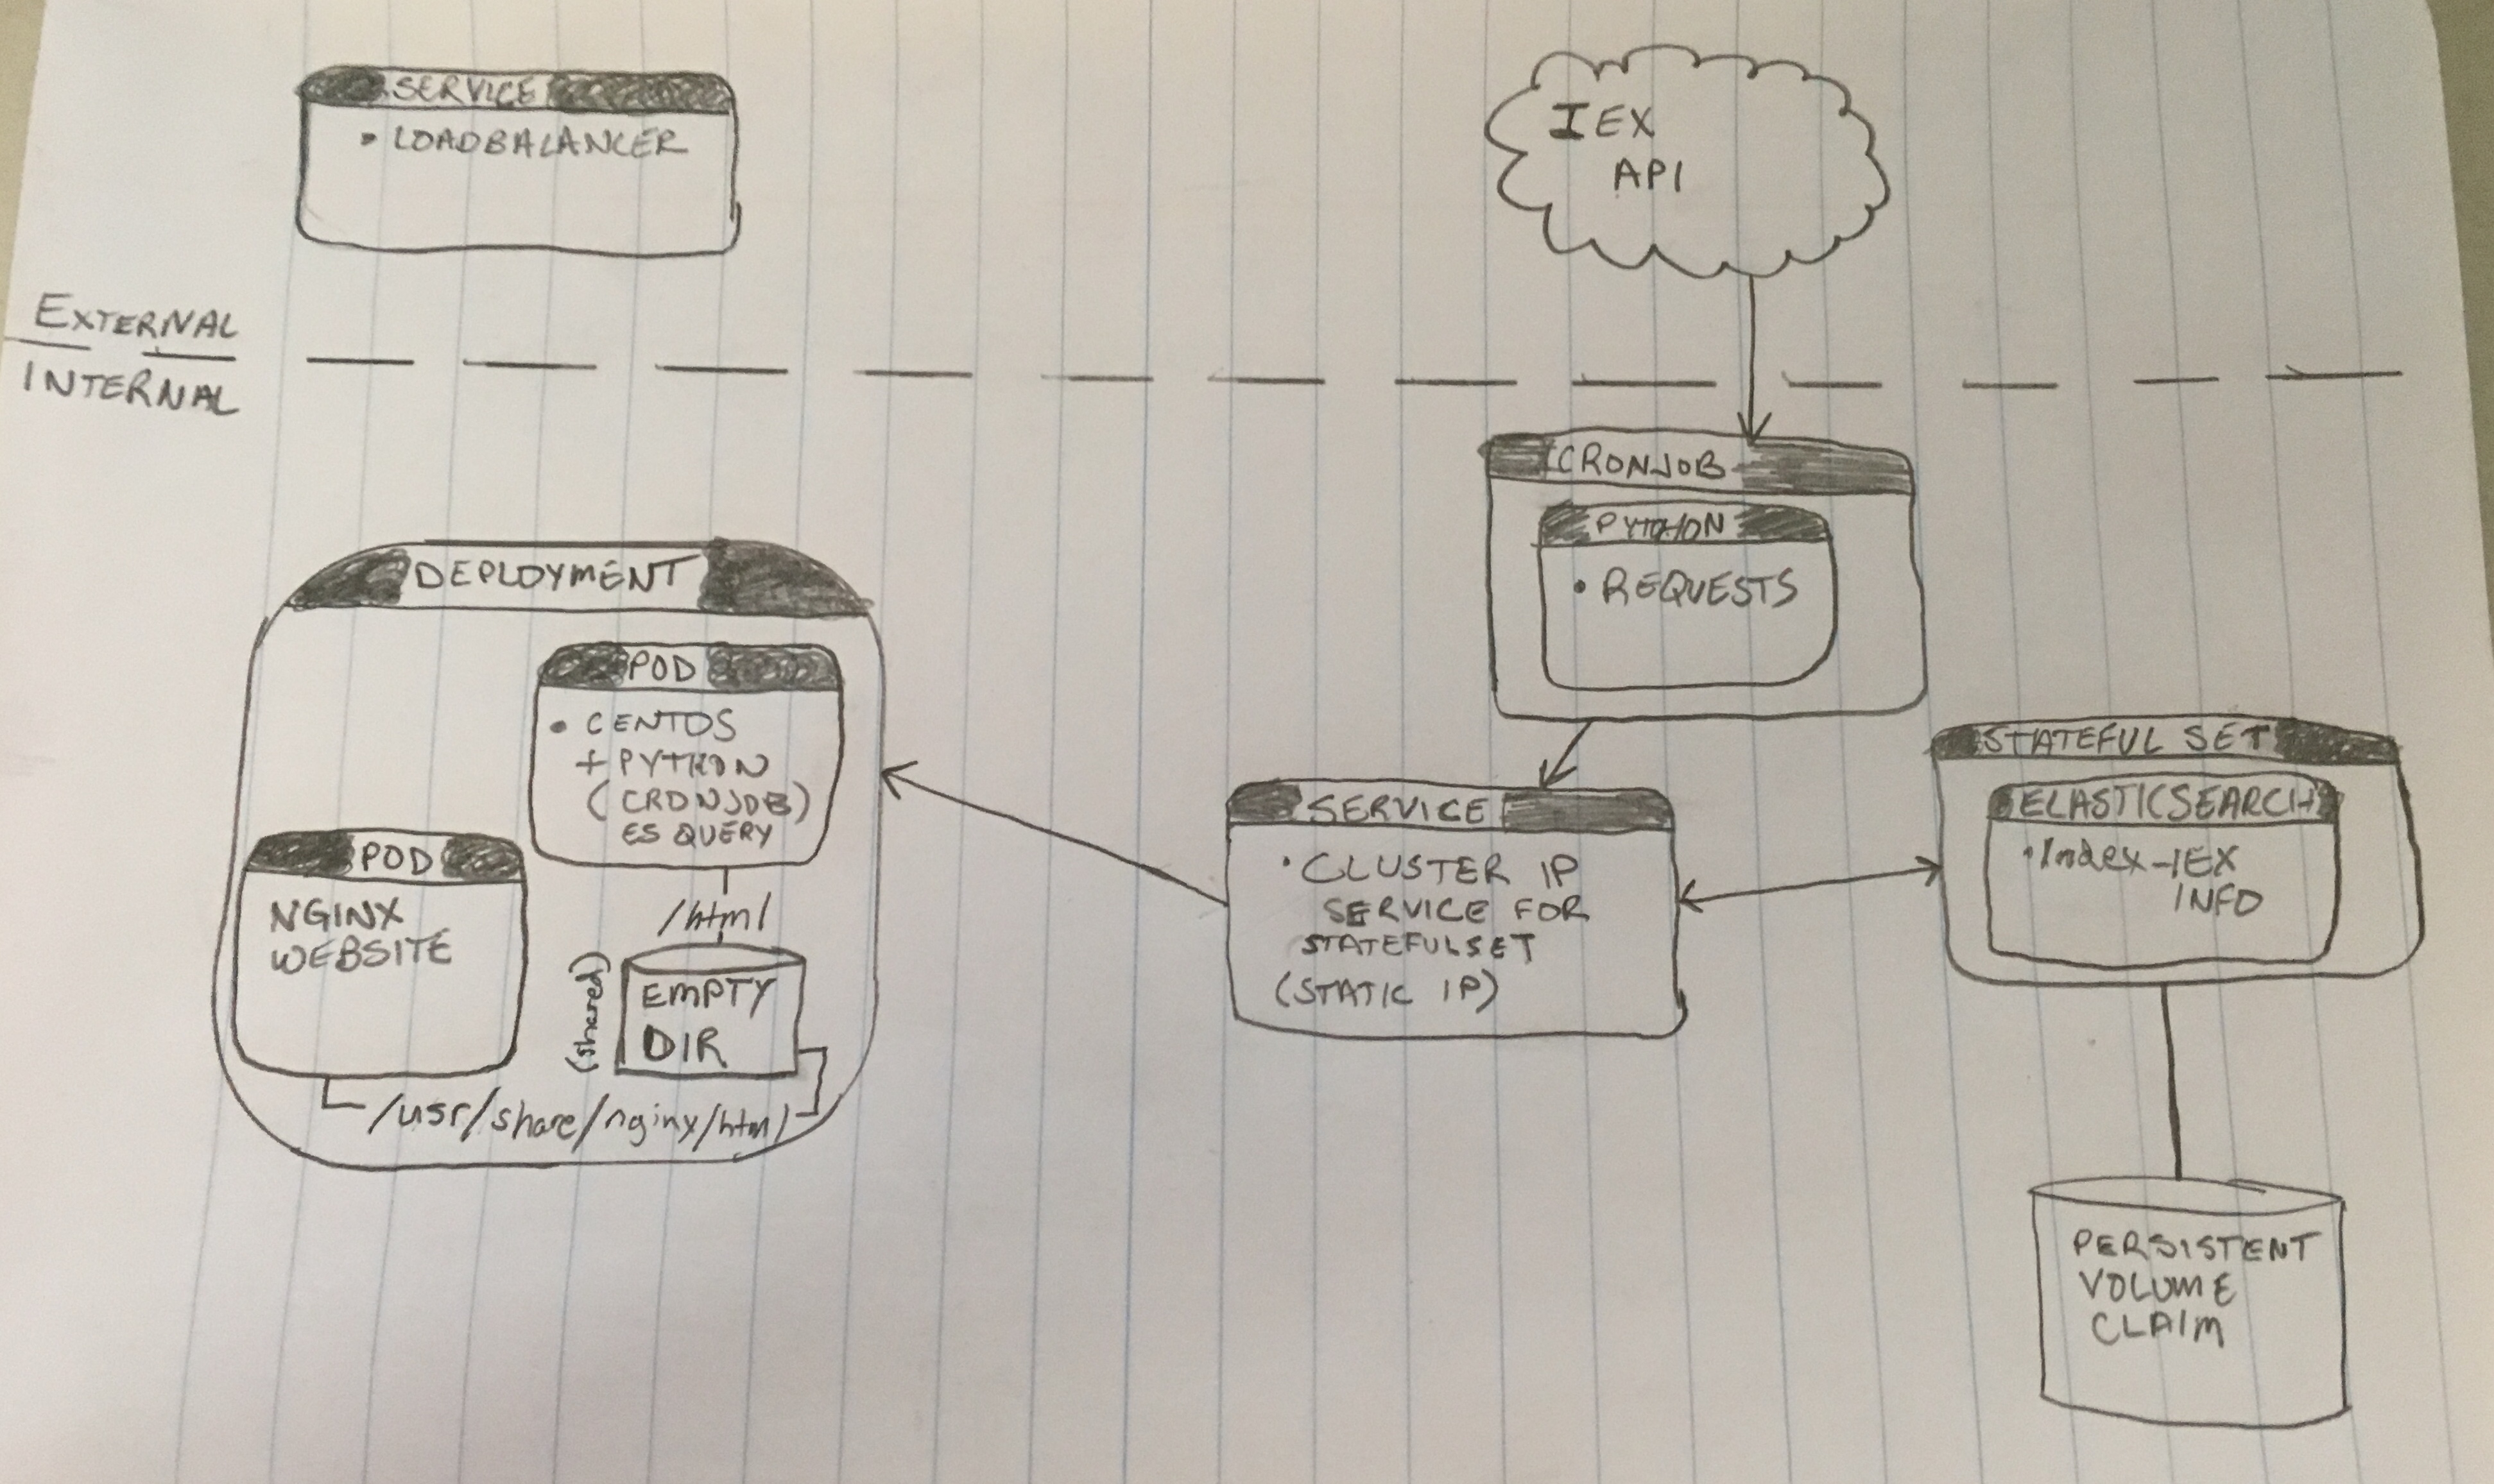 SERVICE
• LOADBALANCER
IEX
API
EXTERNAL
INTERNAL
CRONJOB
PYTHON
• REQUESTS
DEPLOYMENT
POD
• CENTOS
+ PYTHON
(CRONJOB)
ES QUERY
/html
(shared)
EMPTY
DIR
POD
NGINX
WEBSITE
/usr/share/nginx/html
SERVICE
• CLUSTER IP
SERVICE FOR
STATEFULSET
(STATIC IP)
STATEFUL SET
ELASTICSEARCH
• Index-IEX
INFO
PERSISTENT
VOLUME
CLAIM